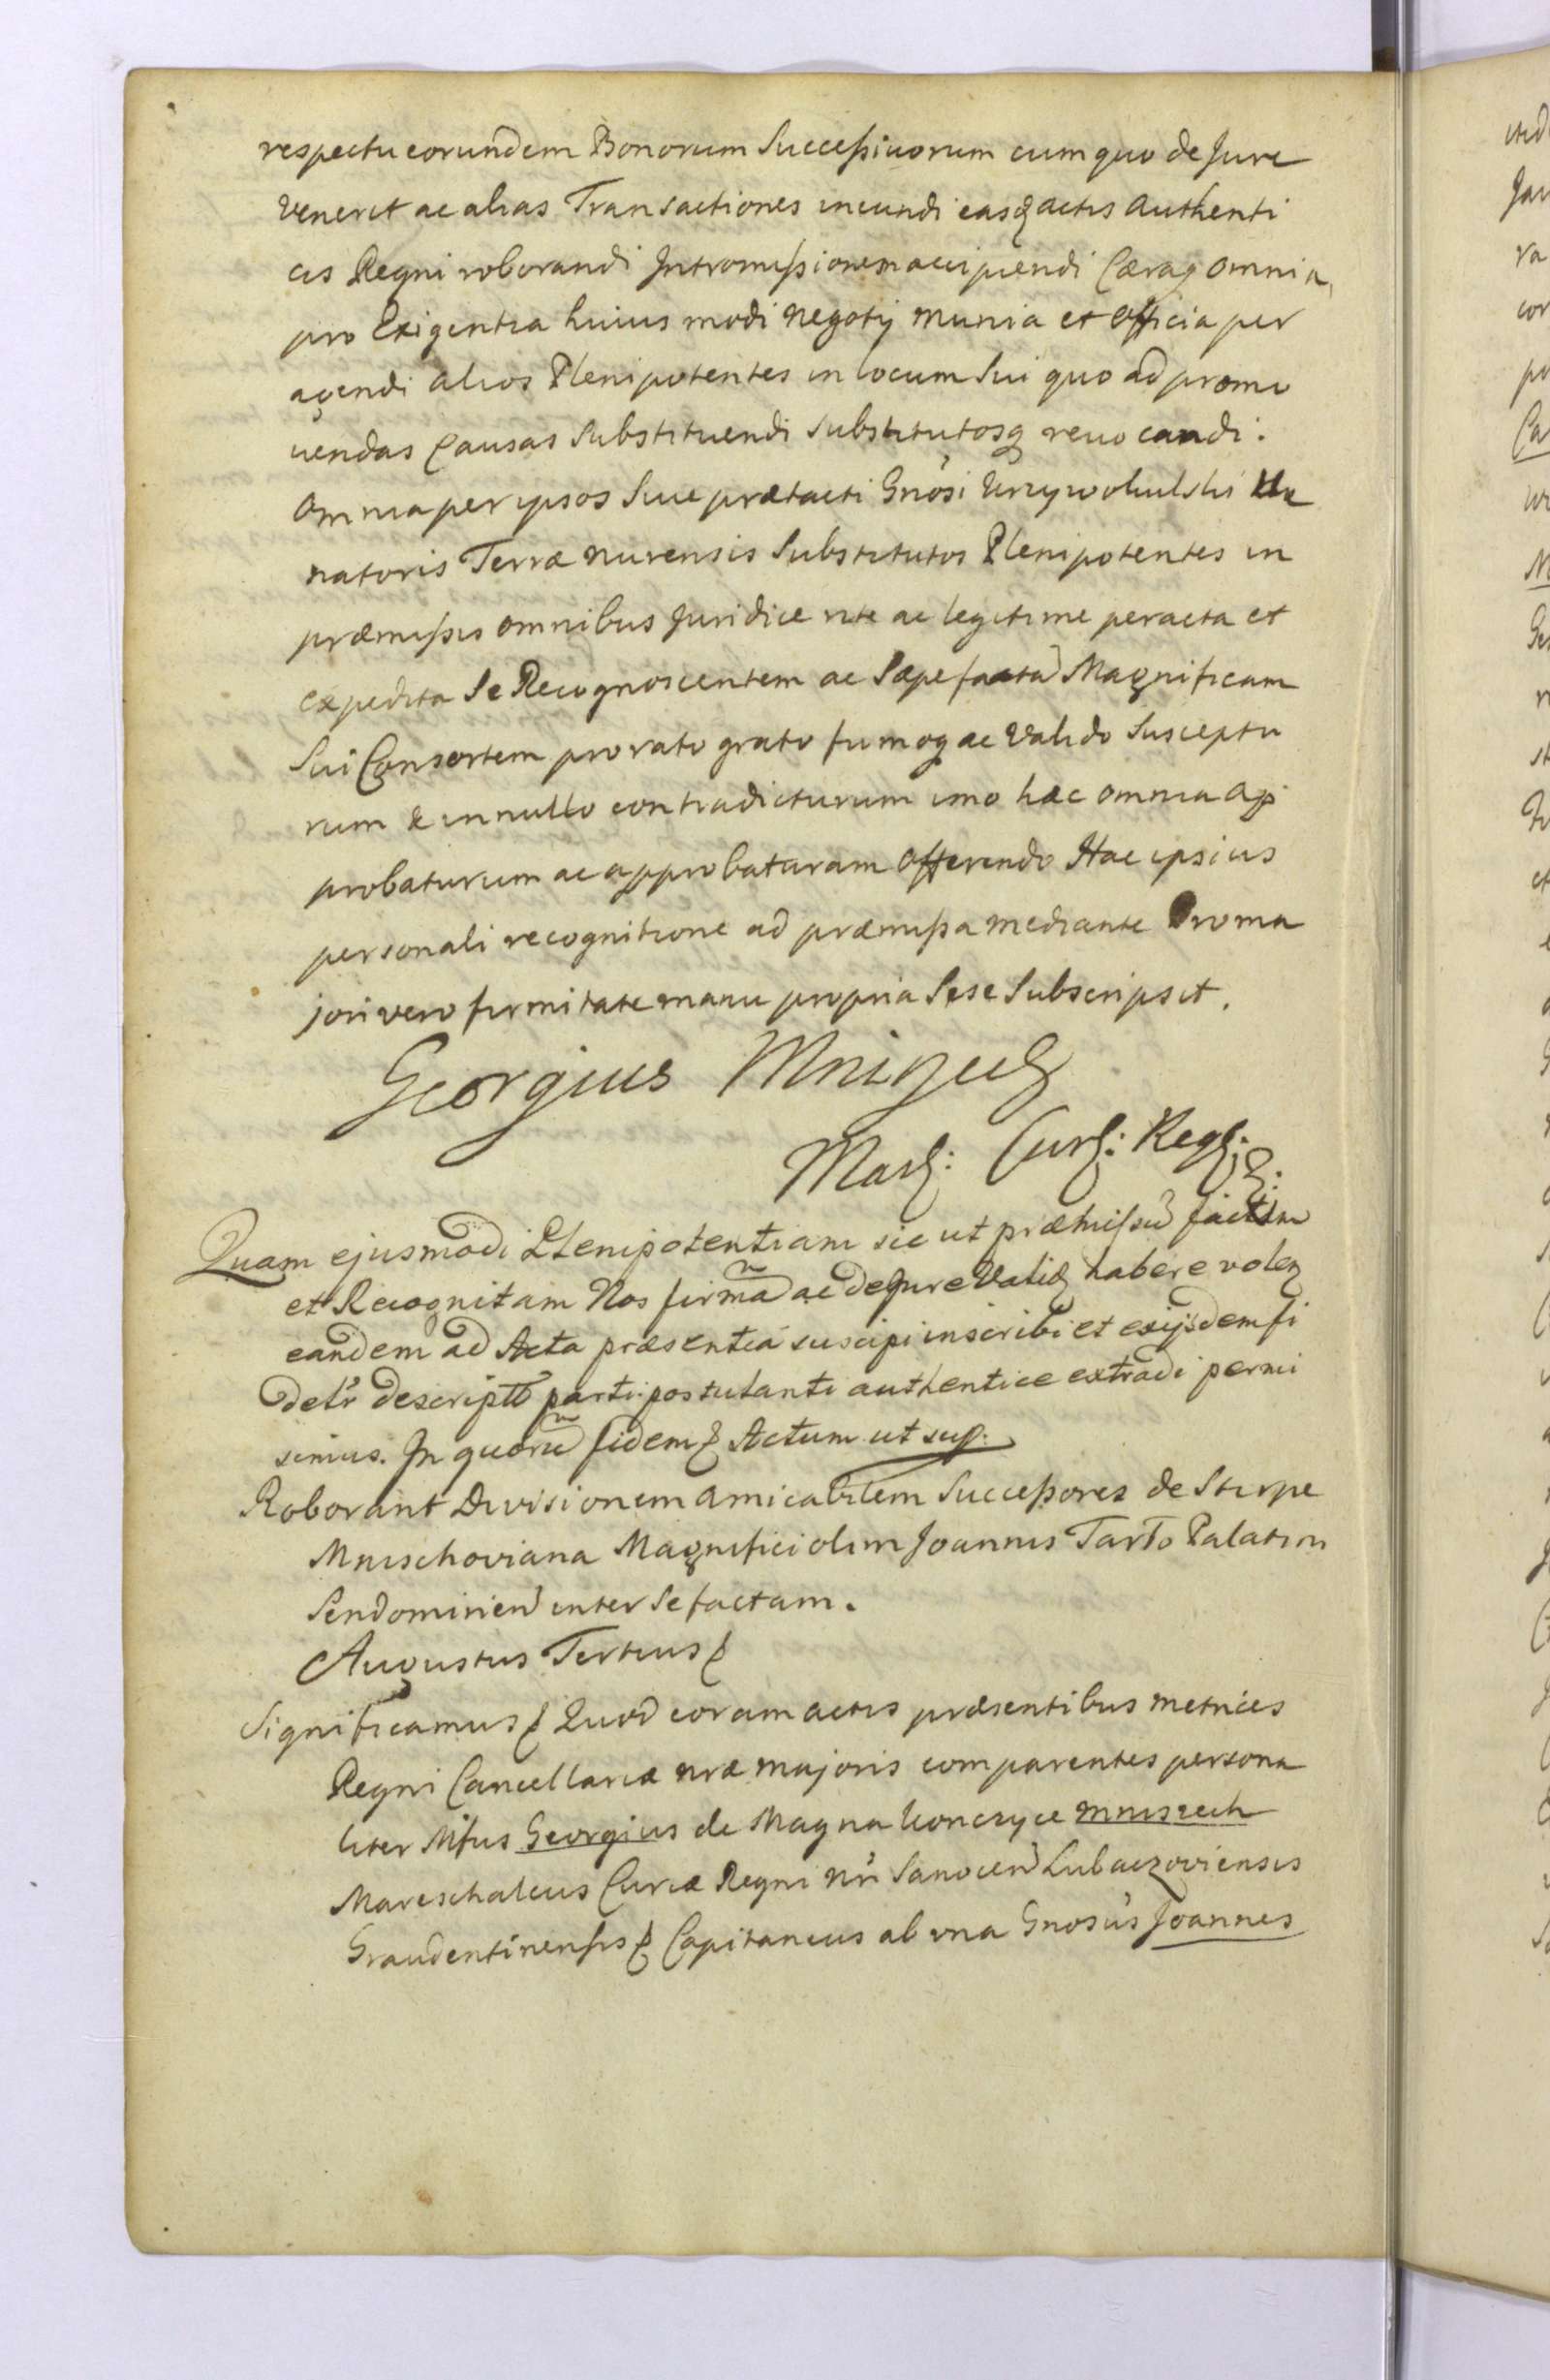 respectu eorundem Bonorum Successivorum cum quo de Jure
venerit ac alias Transactiones ineundi easq actis Authenti
cis Regni roborandi Intromissionem accipiendi Cæraq omnia
pro Exigentia huius modi negotij munia et officia per
agendi alios Plenipotentes in locum sui quo ad promo
uendas Causas substituendi substitutosq reuocandi.
Omnia per ipsos siue prætacti Gnosi Krzywokulski
natoris Terræ nurensis substitutos Plenipotentes in
præmissis omnibus Juridice rite ac legitime peracta et
expedita se Recognoscentem ac Sæpefacta Magnificam
sui Consortem pro rato grato firmoq ac Valido suscceptu
rum & in nullo contradicturum imo hæc omnia ap
probaturum ac approbaturam offerendo Hac ipsius
personali recognitione ad præmissa mediante Pro ma
jori vero firmitate manu propria sese subscripsit.
Georgius Mniszech
Mar: Cur: Reg:
Quam ejusmodi Plenipotentiam sic ut præmissũ factam
et Recognitam Nos firmã ac de Jure Valid habere volen
eandem ad Acta præsentia suscipi inscribi et exijsdem fi
delr descriptt parti postulanti authentice extradi permi
simus. In quorũ fidem Actum ut sup.
Roborant Divisionem amicabilem Successores de Stirpe
Mnischoviana Magnifici olim Joannis Tarło Palatini
Sendomirien inter se factam.
Augustus Tertius
Significamus Quod coram actis præsentibus metrices
Regni Cancellariæ nræ majoris comparentes persona
liter Mfus Georgius de Magna Konczyce Mniszech
Mareschalcus Curiæ Regni nri Sanocen Lubaczoviensis
Graudentinensis Capitaneus ab una Gnosus Joannes